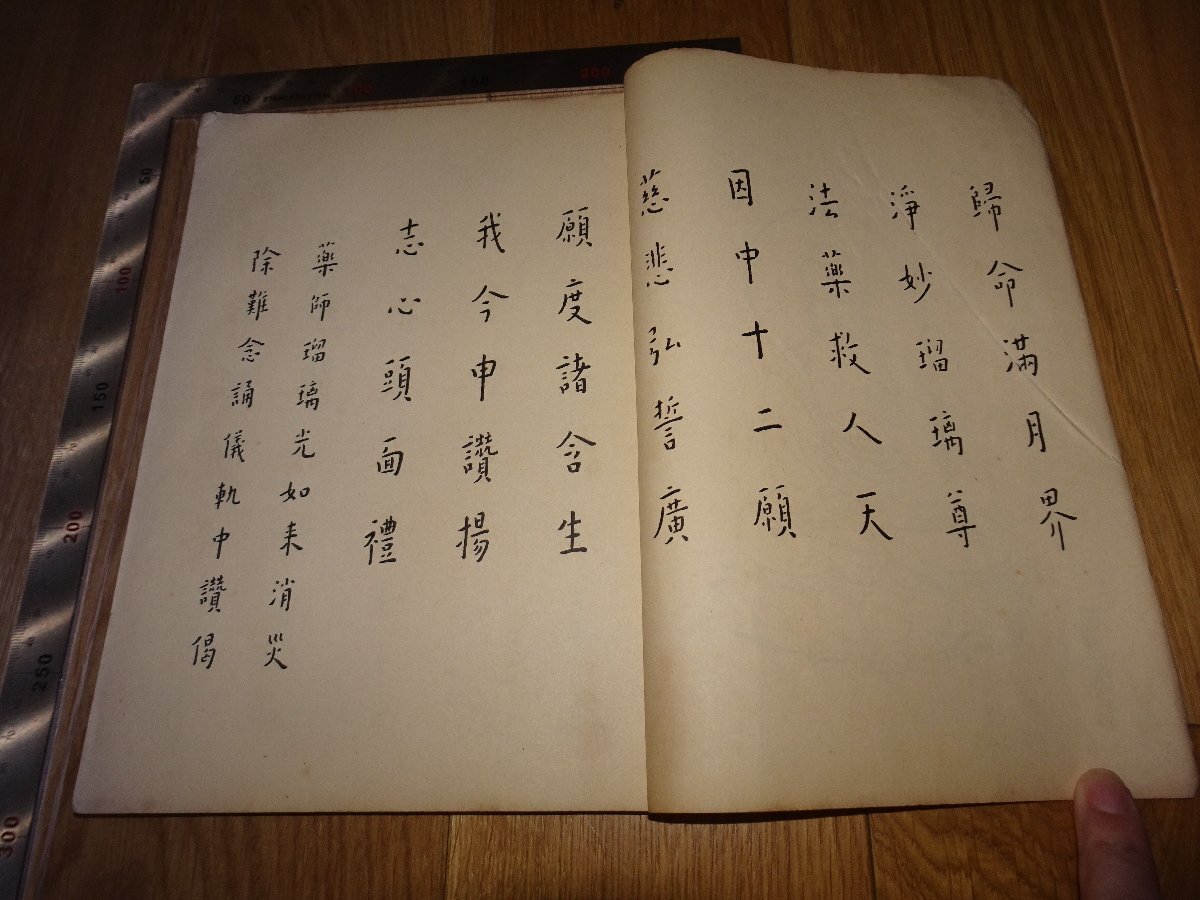 歸命滿月界
淨妙瑠璃尊
法藥救人天
因中十二願
慈悲弘誓廣
願度諸含生
我今申讚揚
志心頭面禮
藥師瑠璃光如来消災
除難念誦儀軌中讚偈
50
100
150
200
50
100
150
200
250
300